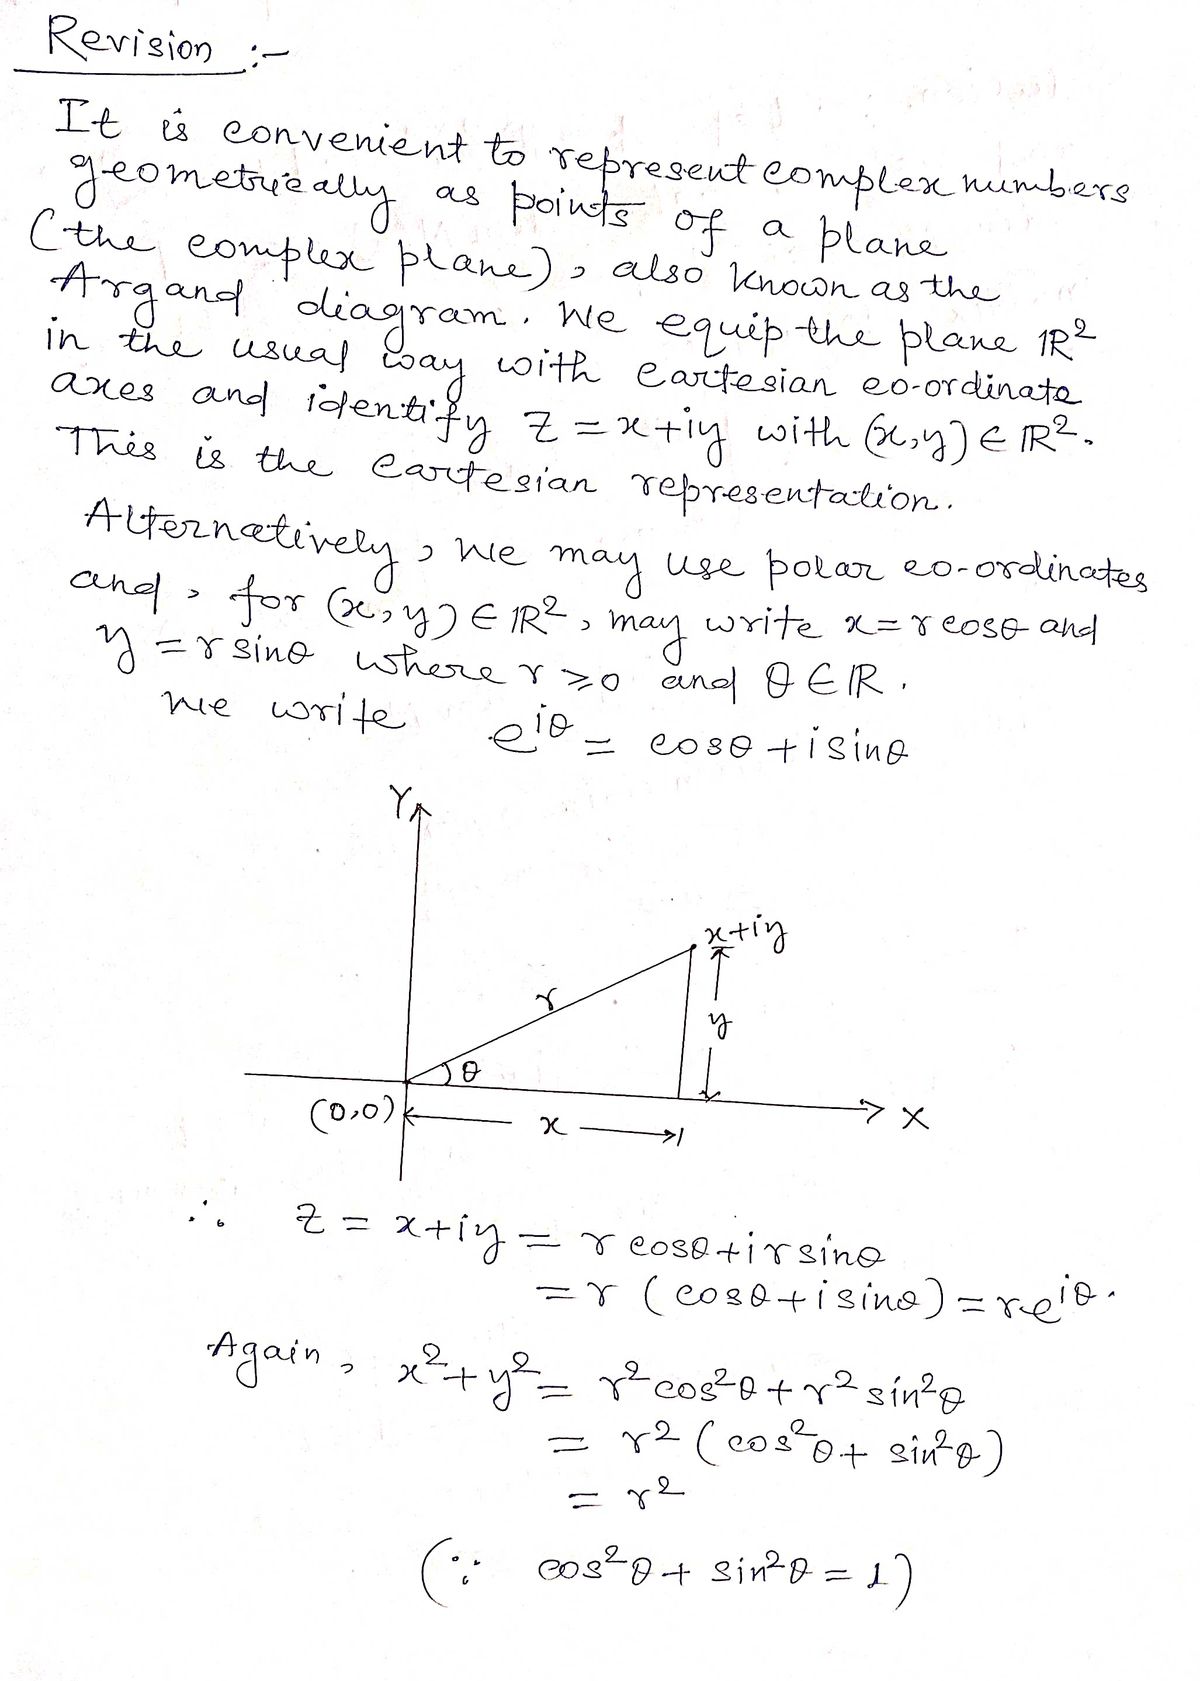 Revision :-
It is convenient to represent complex numbers
geometrically as points of a plane
(the complex plane), also known as the
Argand diagram. We equip the plane ℝ²
in the usual way with cartesian co-ordinate
axes and identify z = x+iy with (x,y) ∈ ℝ².
This is the cartesian representation.
Alternatively, we may use polar co-ordinates
and, for (x,y) ∈ ℝ², may write x = r cosθ and
y = r sinθ where r ⩾ 0 and θ ∈ ℝ.
We write e^{iθ} = cosθ + i sinθ
Y
x+iy
r
y
θ
(0,0)
x
X
∴ z = x+iy = r cosθ + i r sinθ
= r (cosθ + i sinθ) = re^{iθ}.
Again, x² + y² = r² cos²θ + r² sin²θ
= r² (cos²θ + sin²θ)
= r²
(∵ cos²θ + sin²θ = 1)